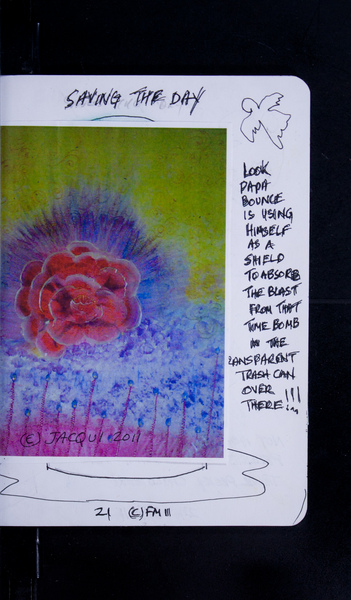 SAVING THE DAY
LOOK
PAPA
BOUNCE
IS USING
HIMSELF
AS A
SHIELD
TO ABSORB
THE BLAST
FROM THAT
TIME BOMB
IN THE
RANSPARENT
TRASH CAN
OVER
THERE!!!
(C) JACQUI 2011
21 (C) FM 111